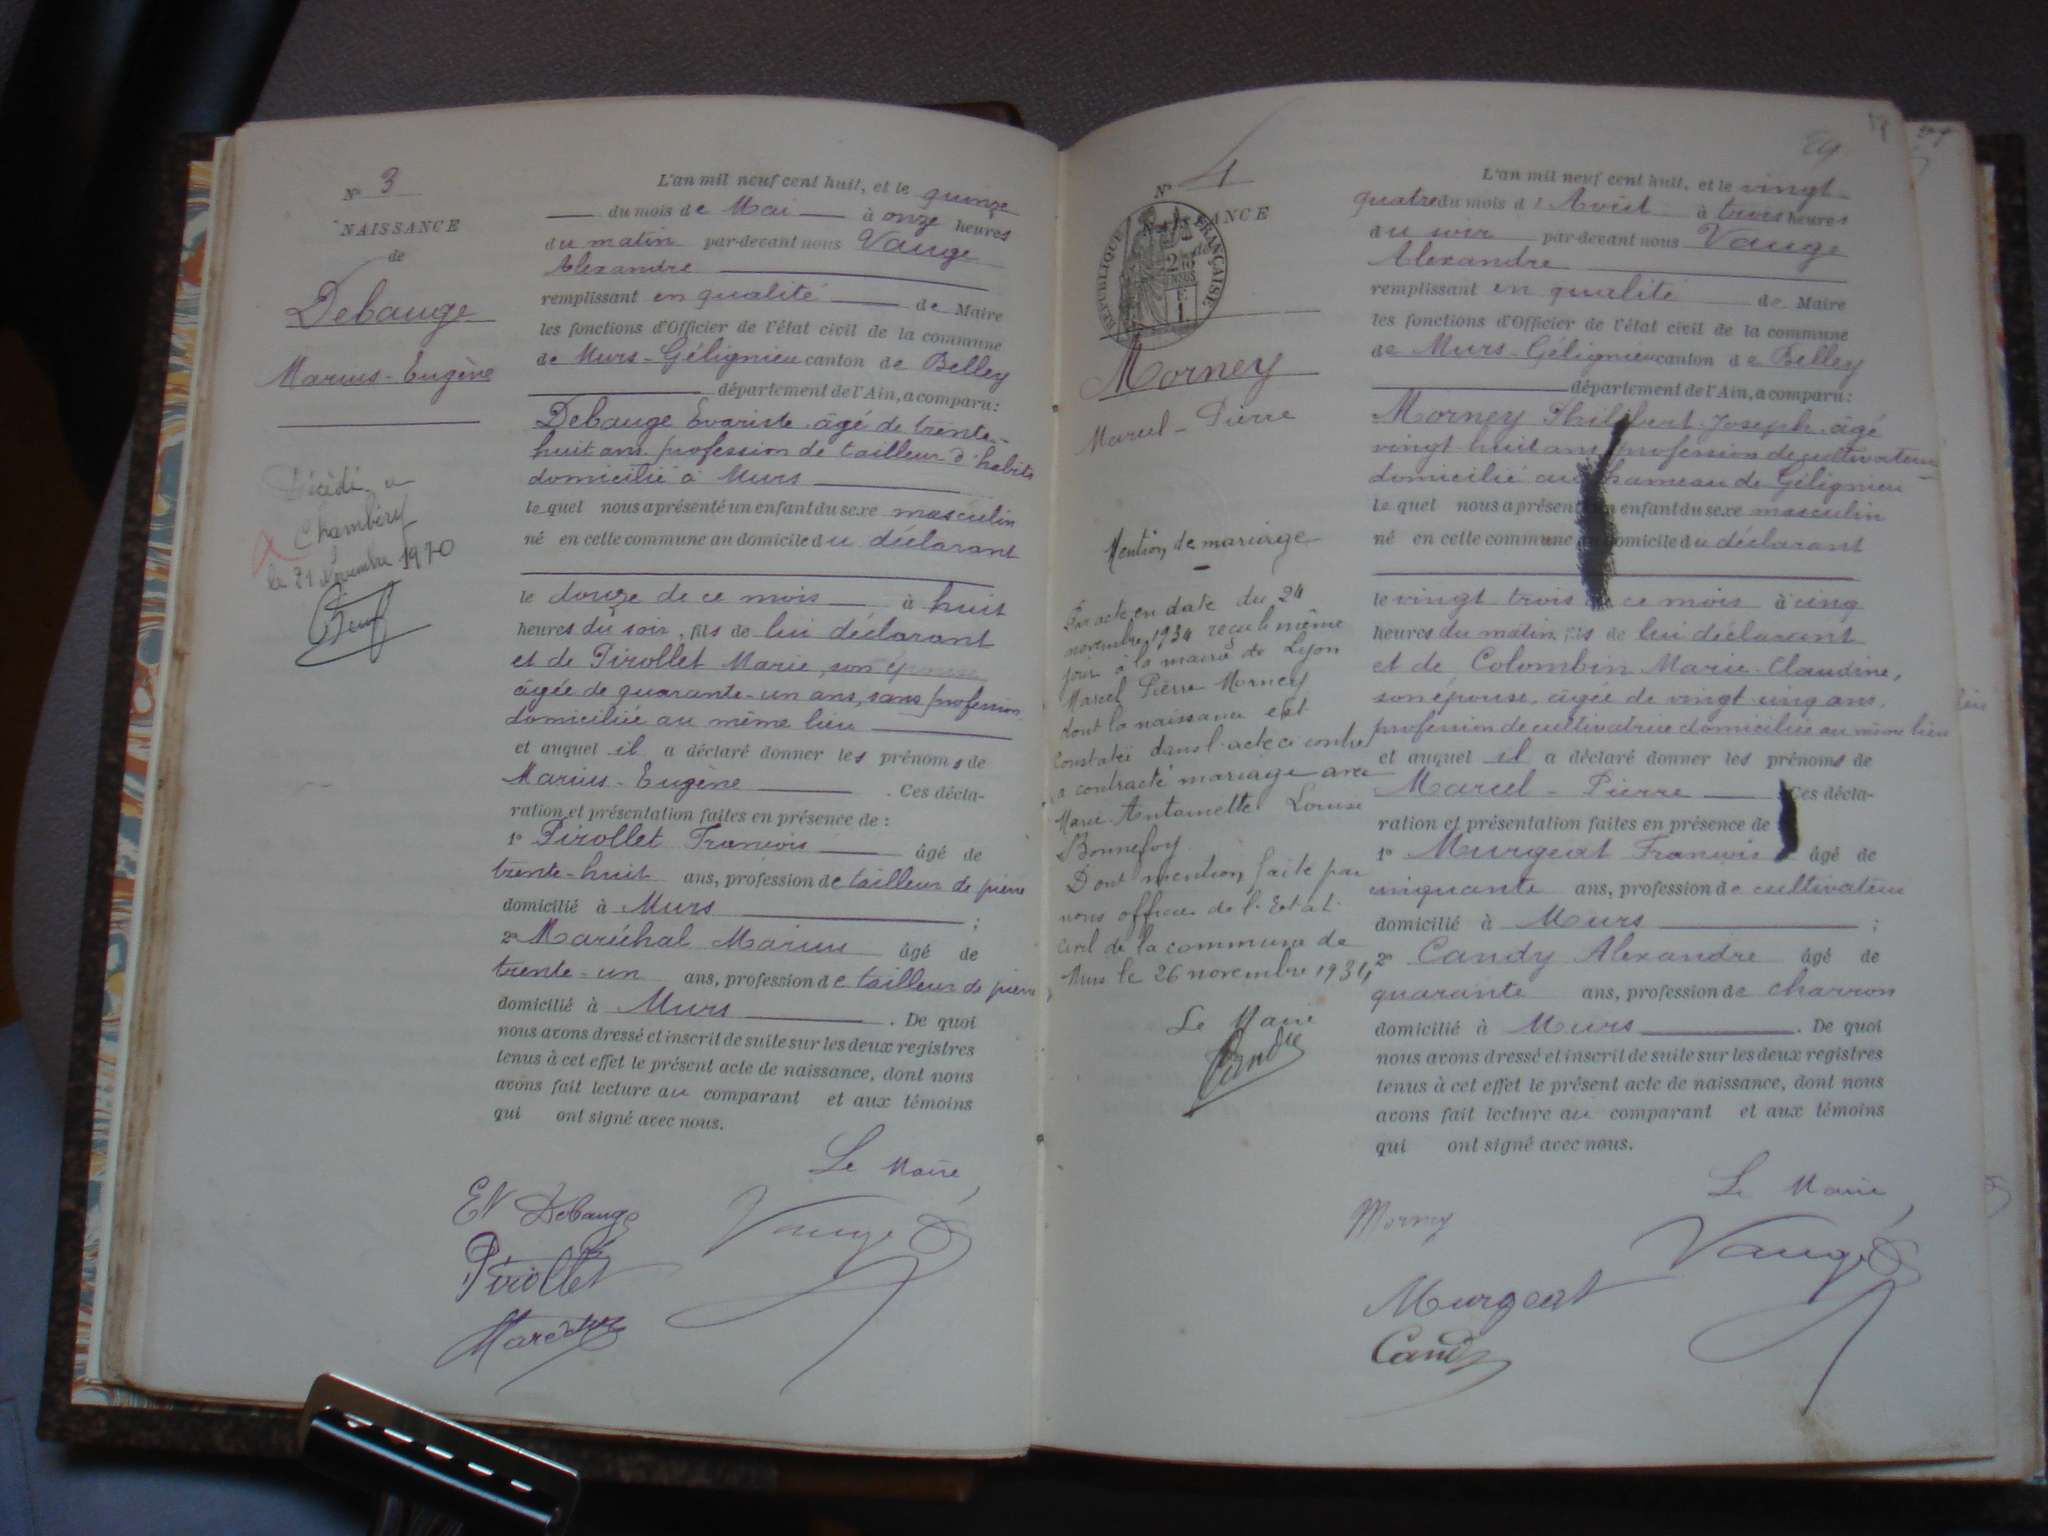 Nº 3
NAISSANCE
de
Debauge
Marius-Eugène
Décédé à
Chambéry
le 21 Novembre 1970
L'an mil neuf cent huit, et le quinze
du mois de Mai à onze heures
du matin par-devant nous Vauge
Alexandre
remplissant en qualité de Maire
les fonctions d'Officier de l'état civil de la commune
de Murs-Gélignieu canton de Belley
département de l'Ain, a comparu:
Debauge Evariste âgé de trente-
huit ans profession de tailleur d'habits
domicilié à Murs
lequel nous a présenté un enfant du sexe masculin
né en cette commune au domicile du déclarant
le douze de ce mois à huit
heures du soir, fils de lui déclarant
et de Pirollet Marie, son épouse
âgée de quarante-un ans, sans profession
domiciliée au même lieu
et auquel il a déclaré donner les prénoms de
Marius-Eugène. Ces décla-
ration et présentation faites en présence de :
1º Pirollet François âgé de
trente-huit ans, profession de tailleur de pierre
domicilié à Murs ;
2º Maréchal Marius âgé de
trente-un ans, profession de tailleur de pierre
domicilié à Murs. De quoi
nous avons dressé et inscrit de suite sur les deux registres
tenus à cet effet le présent acte de naissance, dont nous
avons fait lecture au comparant et aux témoins
qui ont signé avec nous.
Le Maire
Debauge
Vauge
Pirollet
Maréchal
Nº 4
NAISSANCE
de
RÉPUBLIQUE FRANÇAISE
Morney
Marcel-Pierre
Mention de mariage
Par acte en date du 24
novembre 1934 reçu le même
jour à la mairie de Lyon
Marcel Pierre Morney
dont la naissance est
constatée dans l'acte ci contre
a contracté mariage avec
Marie Antoinette Louise
Bonnefoy.
Dont mention faite par
nous officier de l'Etat
civil de la commune de
Murs le 26 novembre 1934
Le Maire
L'an mil neuf cent huit, et le vingt
quatre du mois d'Août à trois heures
du soir par-devant nous Vauge
Alexandre
remplissant en qualité de Maire
les fonctions d'Officier de l'état civil de la commune
de Murs-Gélignieu canton de Belley
département de l'Ain, a comparu:
Morney Philibert-Joseph âgé
vingt huit ans profession de cultivateur
domicilié au hameau de Gélignieu
lequel nous a présenté un enfant du sexe masculin
né en cette commune au domicile du déclarant
le vingt trois de ce mois à cinq
heures du matin, fils de lui déclarant
et de Colombin Marie-Claudine,
son épouse, âgée de vingt cinq ans,
profession de cultivatrice domiciliée au même lieu
et auquel il a déclaré donner les prénoms de
Marcel-Pierre. Ces décla-
ration et présentation faites en présence de
1º Murgeat François âgé de
cinquante ans, profession de cultivateur
domicilié à Murs ;
2º Candy Alexandre âgé de
quarante ans, profession de charron
domicilié à Murs. De quoi
nous avons dressé et inscrit de suite sur les deux registres
tenus à cet effet le présent acte de naissance, dont nous
avons fait lecture au comparant et aux témoins
qui ont signé avec nous.
Le Maire
Morney
Vauge
Murgeat
Candy